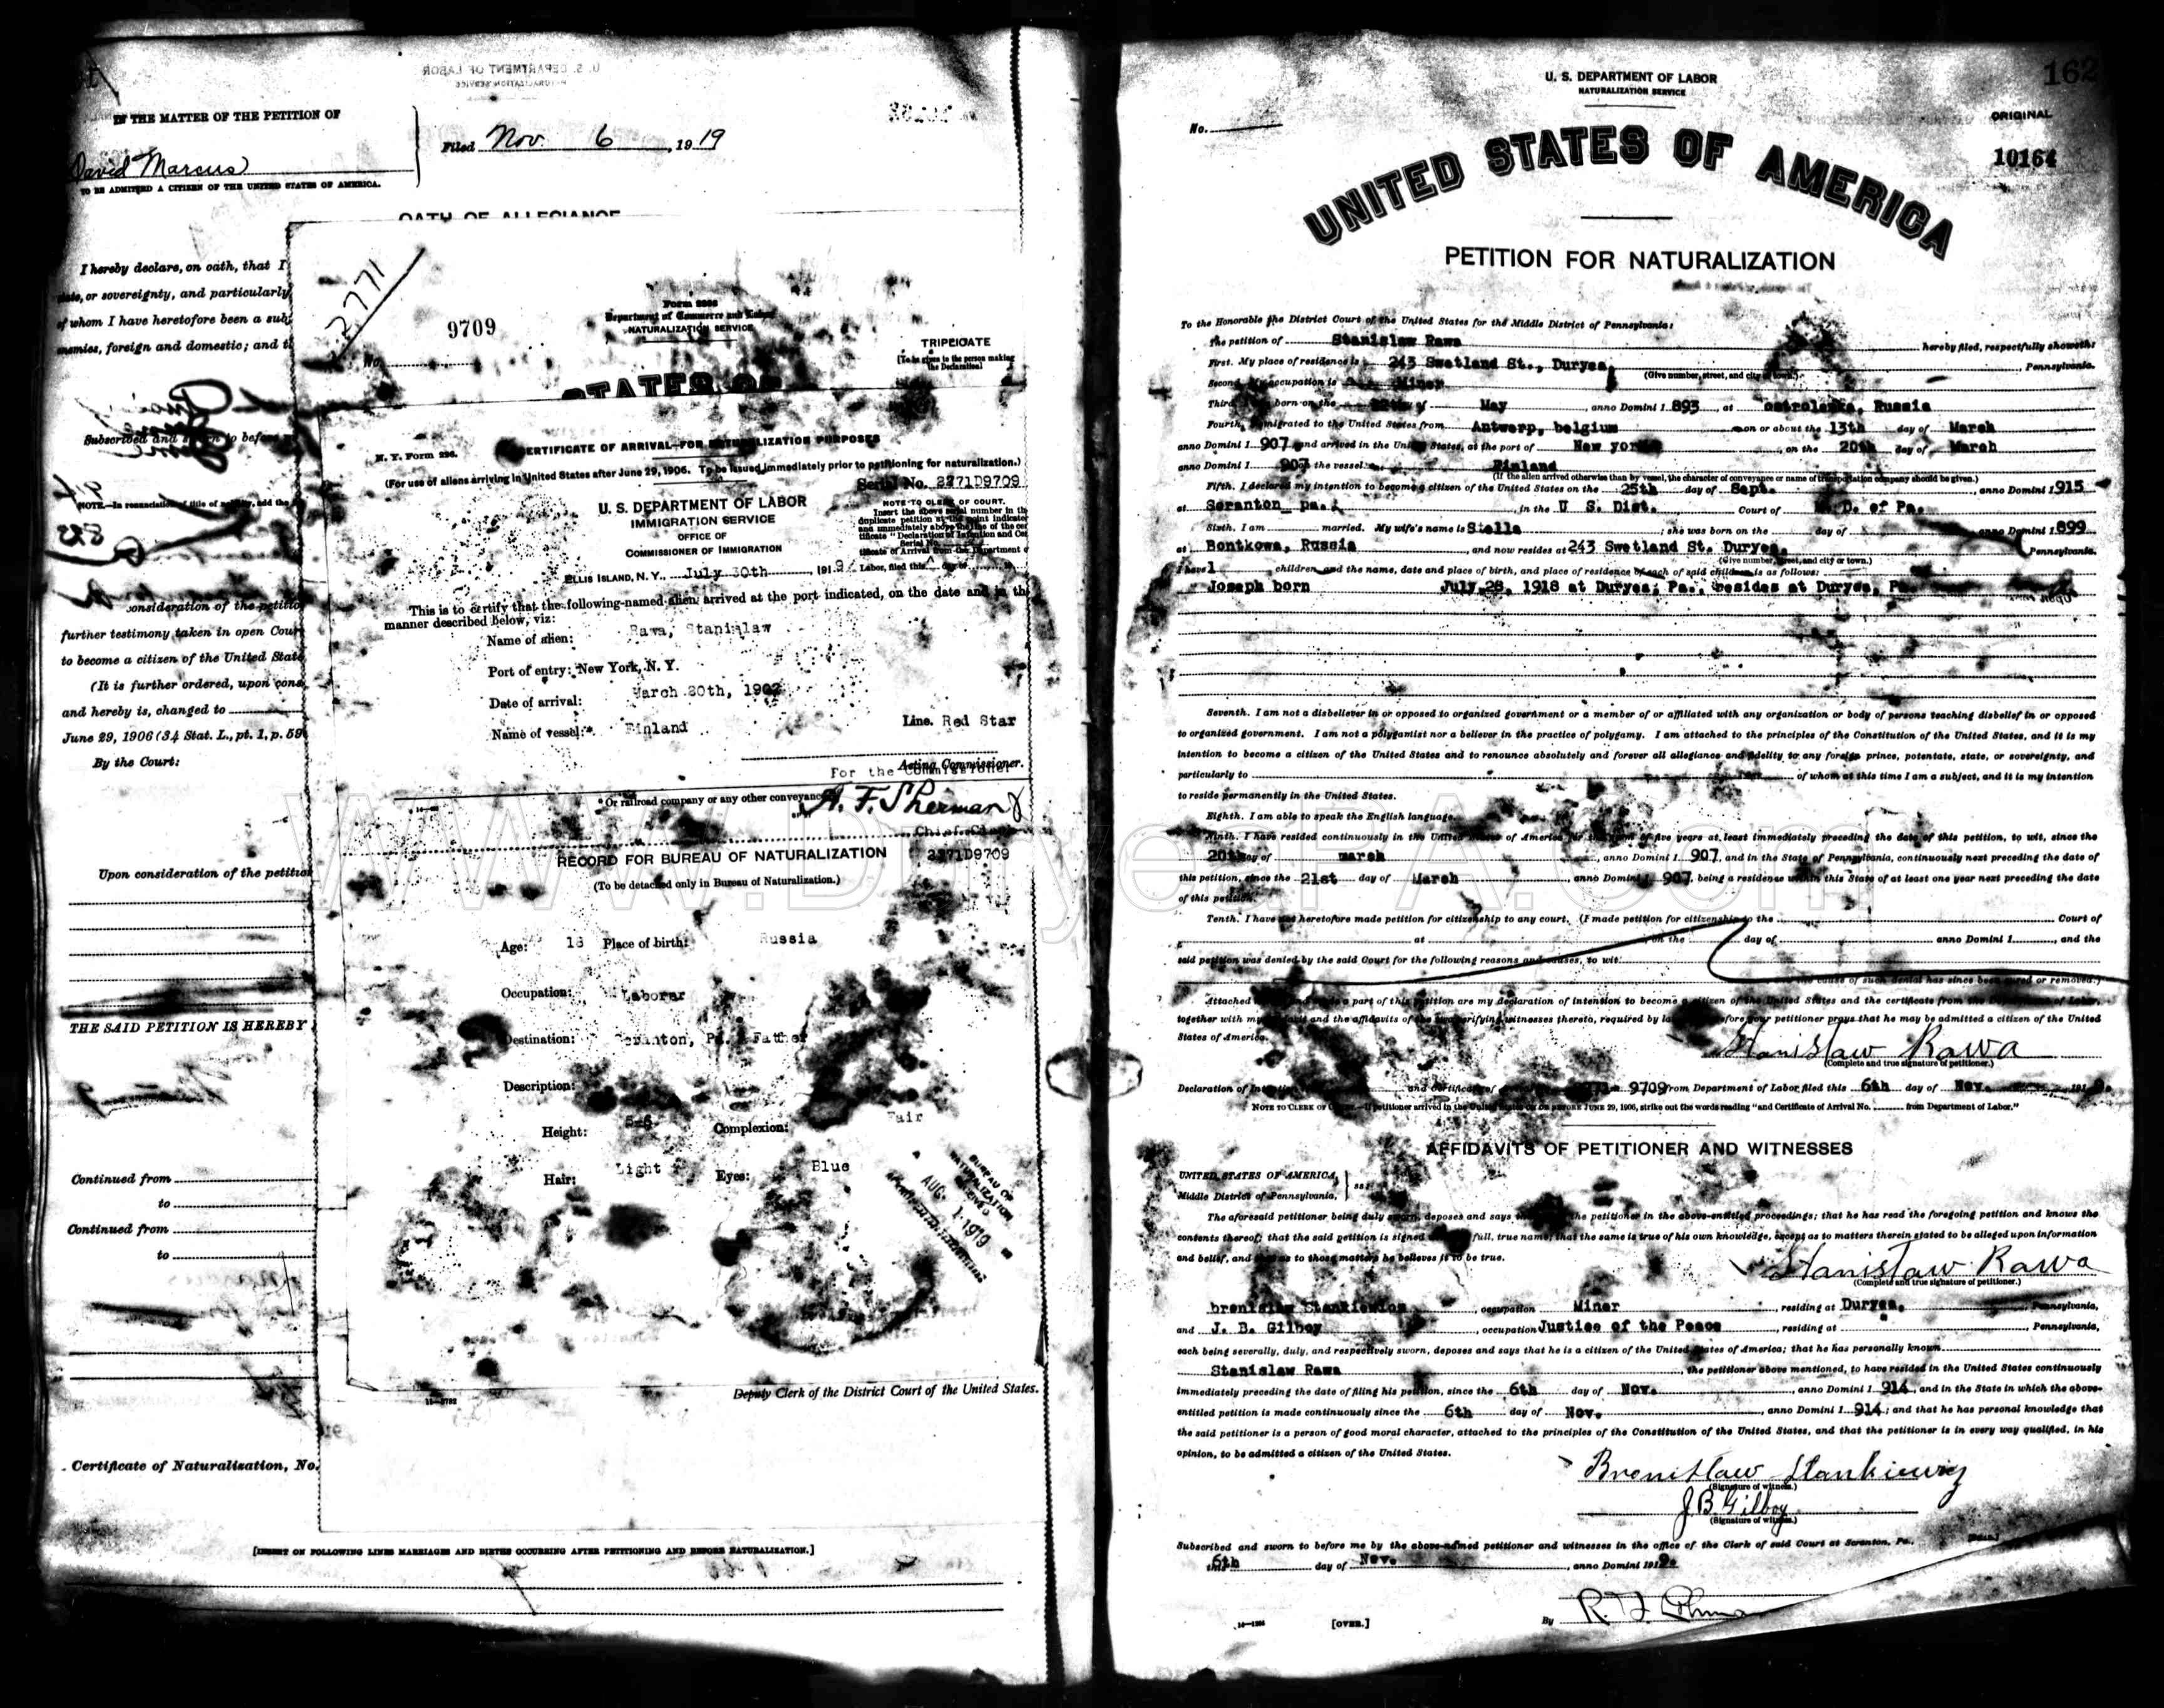 IN THE MATTER OF THE PETITION OF
David Marcus
TO BE ADMITTED A CITIZEN OF THE UNITED STATES OF AMERICA.
Filed Nov. 6, 1919
OATH OF ALLEGIANCE
I hereby declare, on oath, that I
state, or sovereignty, and particularly
of whom I have heretofore been a subj
enemies, foreign and domestic; and t
Subscribed and sworn to before
NOTE.—In renunciation of title of nobility, add the
consideration of the petitio
further testimony taken in open Cour
to become a citizen of the United State
(It is further ordered, upon cons
and hereby is, changed to
June 29, 1906 (34 Stat. L., pt. 1, p. 59
By the Court:
Upon consideration of the petition
THE SAID PETITION IS HEREBY
Continued from
to
Continued from
to
Certificate of Naturalization, No.
Deputy Clerk of the District Court of the United States.
[INSERT ON FOLLOWING LINES MARRIAGES AND BIRTHS OCCURRING AFTER PETITIONING AND BEFORE NATURALIZATION.]
2771
9709
No.
Department of Commerce and Labor
NATURALIZATION SERVICE
TRIPLICATE
[To be given to the person making the Declaration]
STATES OF
N. Y. Form 226.
CERTIFICATE OF ARRIVAL—FOR NATURALIZATION PURPOSES
(For use of aliens arriving in United States after June 29, 1906. To be issued immediately prior to petitioning for naturalization.)
Serial No. 2271D9709
U. S. DEPARTMENT OF LABOR
IMMIGRATION SERVICE
OFFICE OF
COMMISSIONER OF IMMIGRATION
NOTE TO CLERK OF COURT.
Insert the above serial number in th
duplicate petition at the point indicate
and immediately above the line of the cer
tificate "Declaration of Intention and Cer
tificate of Arrival from the Department o
Labor, filed this day of
ELLIS ISLAND, N. Y., July 30th, 1919
This is to certify that the following-named alien arrived at the port indicated, on the date and in th
manner described below, viz:
Name of alien: Rawa, Stanislaw
Port of entry: New York, N. Y.
Date of arrival: March 20th, 1907
Name of vessel:* Finland
Line. Red Star
Acting Commissioner.
For the Commissioner
*Or railroad company or any other conveyance
A. F. Sherman
Chief Clerk
RECORD FOR BUREAU OF NATURALIZATION
2271D9709
(To be detached only in Bureau of Naturalization.)
Age: 18 Place of birth: Russia
Occupation: Laborer
Destination: Scranton, Pa. Father
Description:
Height: 5-6 Complexion: Fair
Hair: Light Eyes: Blue
BUREAU OF
NATURALIZATION
RECEIVED
AUG. 1-1919
162
U. S. DEPARTMENT OF LABOR
NATURALIZATION SERVICE
No.
ORIGINAL
10164
UNITED STATES OF AMERICA
PETITION FOR NATURALIZATION
To the Honorable the District Court of the United States for the Middle District of Pennsylvania:
The petition of Stanislaw Rawa hereby filed, respectfully showeth:
First. My place of residence is 243 Swetland St., Duryea, Pennsylvania.
(Give number, street, and city or town.)
Second. My occupation is Miner
Third. I was born on the day of May, anno Domini 1 893, at Ostrolenka, Russia
Fourth. I emigrated to the United States from Antwerp, belgium on or about the 13th day of March
anno Domini 1 907 and arrived in the United States, at the port of New york, on the 20th day of March
anno Domini 1 907 on the vessel Finland
(If the alien arrived otherwise than by vessel, the character of conveyance or name of transportation company should be given.)
Fifth. I declared my intention to become a citizen of the United States on the 25th day of Sept., anno Domini 1 915
at Scranton pa., in the U S. Dist. Court of M. D. of Pa.
Sixth. I am married. My wife's name is Stella; she was born on the day of anno Domini 1 899
at Bontkowa, Russia, and now resides at 243 Swetland St. Duryea, Pennsylvania.
(Give number, street, and city or town.)
I have 1 children, and the name, date and place of birth, and place of residence of each of said children is as follows:
Joseph born July 28, 1918 at Duryea, Pa., resides at Duryea, Pa.
Seventh. I am not a disbeliever in or opposed to organized government or a member of or affiliated with any organization or body of persons teaching disbelief in or opposed
to organized government. I am not a polygamist nor a believer in the practice of polygamy. I am attached to the principles of the Constitution of the United States, and it is my
intention to become a citizen of the United States and to renounce absolutely and forever all allegiance and fidelity to any foreign prince, potentate, state, or sovereignty, and
particularly to of whom at this time I am a subject, and it is my intention
to reside permanently in the United States.
Eighth. I am able to speak the English language.
Ninth. I have resided continuously in the United States of America for the term of five years at least immediately preceding the date of this petition, to wit, since the
20th day of march, anno Domini 1 907, and in the State of Pennsylvania, continuously next preceding the date of
this petition, since the 21st day of March, anno Domini 1 907, being a residence within this State of at least one year next preceding the date
of this petition.
Tenth. I have not heretofore made petition for citizenship to any court. (I made petition for citizenship to the Court of
at on the day of anno Domini 1, and the
said petition was denied by the said Court for the following reasons and causes, to wit:
the cause of such denial has since been cured or removed.)
Attached hereto and made a part of this petition are my declaration of intention to become a citizen of the United States and the certificate from the Department of Labor,
together with my affidavit and the affidavits of the two verifying witnesses thereto, required by law. Wherefore your petitioner prays that he may be admitted a citizen of the United
States of America.
Stanislaw Rawa
(Complete and true signature of petitioner.)
Declaration of Intention and Certificate of 9709 from Department of Labor filed this 6th day of Nov. 1919.
NOTE TO CLERK OF COURT.—If petitioner arrived in the United States ON OR BEFORE JUNE 29, 1906, strike out the words reading "and Certificate of Arrival No. from Department of Labor."
AFFIDAVITS OF PETITIONER AND WITNESSES
UNITED STATES OF AMERICA,
Middle District of Pennsylvania, ss:
The aforesaid petitioner being duly sworn, deposes and says that he is the petitioner in the above-entitled proceedings; that he has read the foregoing petition and knows the
contents thereof; that the said petition is signed with his full, true name; that the same is true of his own knowledge, except as to matters therein stated to be alleged upon information
and belief, and that as to those matters he believes it to be true.
Stanislaw Rawa
(Complete and true signature of petitioner.)
bronislaw Stankiewicz, occupation Miner, residing at Duryea, Pennsylvania,
and J. B. Gilboy, occupation Justice of the Peace, residing at, Pennsylvania,
each being severally, duly, and respectively sworn, deposes and says that he is a citizen of the United States of America; that he has personally known
Stanislaw Rawa, the petitioner above mentioned, to have resided in the United States continuously
immediately preceding the date of filing his petition, since the 6th day of Nov., anno Domini 1 914, and in the State in which the above-
entitled petition is made continuously since the 6th day of Nov., anno Domini 1 914; and that he has personal knowledge that
the said petitioner is a person of good moral character, attached to the principles of the Constitution of the United States, and that the petitioner is in every way qualified, in his
opinion, to be admitted a citizen of the United States.
Bronislaw Stankiewicz
(Signature of witness.)
J B Gilboy
(Signature of witness.)
Subscribed and sworn to before me by the above-named petitioner and witnesses in the office of the Clerk of said Court at Scranton, Pa.,
this 6th day of Nov., anno Domini 1919.
[OVER.]
By
www.DuryeaPA.com